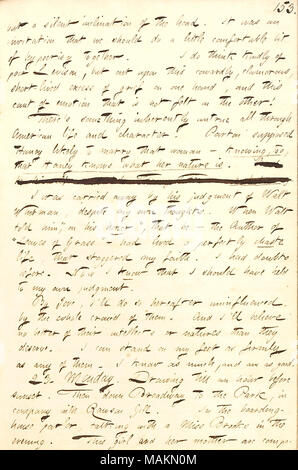 153.
not a silent inclination of the head. It was an
invitation that we should do a little comfortable bit
of hypocrisy together. I do think kindly of
poor Levison, but out upon this cowardly, clamorous,
short lived excess of grief on one hand, and this
cant of emotion that is not felt on the other!
There's something inherently untrue all through
American life and character! Parton supposed
Haney likely to marry that woman — knowing, too,
that Haney knows what her nature is.
I was carried away by his judgment of Walt
Whitman, despite my own thoughts. When Walt
told him, on his that he, the Author of
"Leaves of Grass" had lived a perfectly chaste
life, that staggered my faith. I had doubts
before. Now I know that I should have held
to my own judgment.
By Jove, I'll do so hereafter uninfluenced
by the whole crowd of them. And I'll believe
no better of their intellects or natures than they
deserve. I can stand on my feet as firmly
as any of them. I know as much, and am as good.
22. Monday. Drawing till an hour before
sunset. Then down Broadway to the Park, in
company with Ransom Gill. In the boarding-
house parlor talking with a Miss Brooks in the
evening. This girl and her mother are comp-
alamy
Image ID: MAKN0M
www.alamy.com